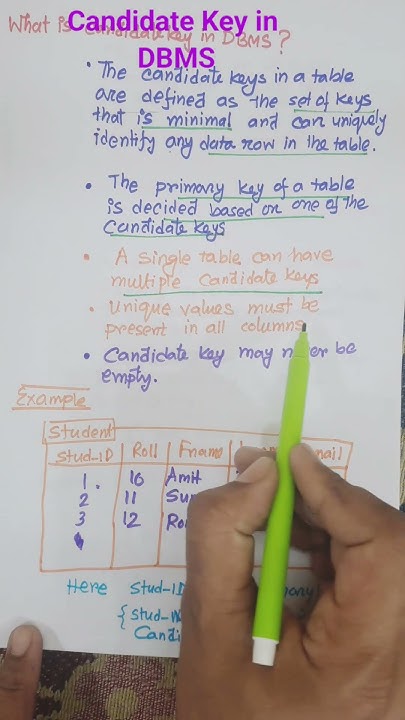 Candidate Key in
DBMS
What is Candidate key in DBMS ?
• The candidate keys in a table
are defined as the set of keys
that is minimal and can uniquely
identify any data row in the table.
• The primary key of a table
is decided based on one of the
Candidate keys
• A single table can have
multiple Candidate keys
• Unique values must be
present in all columns
• Candidate key may never be
empty.
Example
Student
Stud-ID Roll Fname
1 16 Amit
2 11
3 12
Here Stud-ID